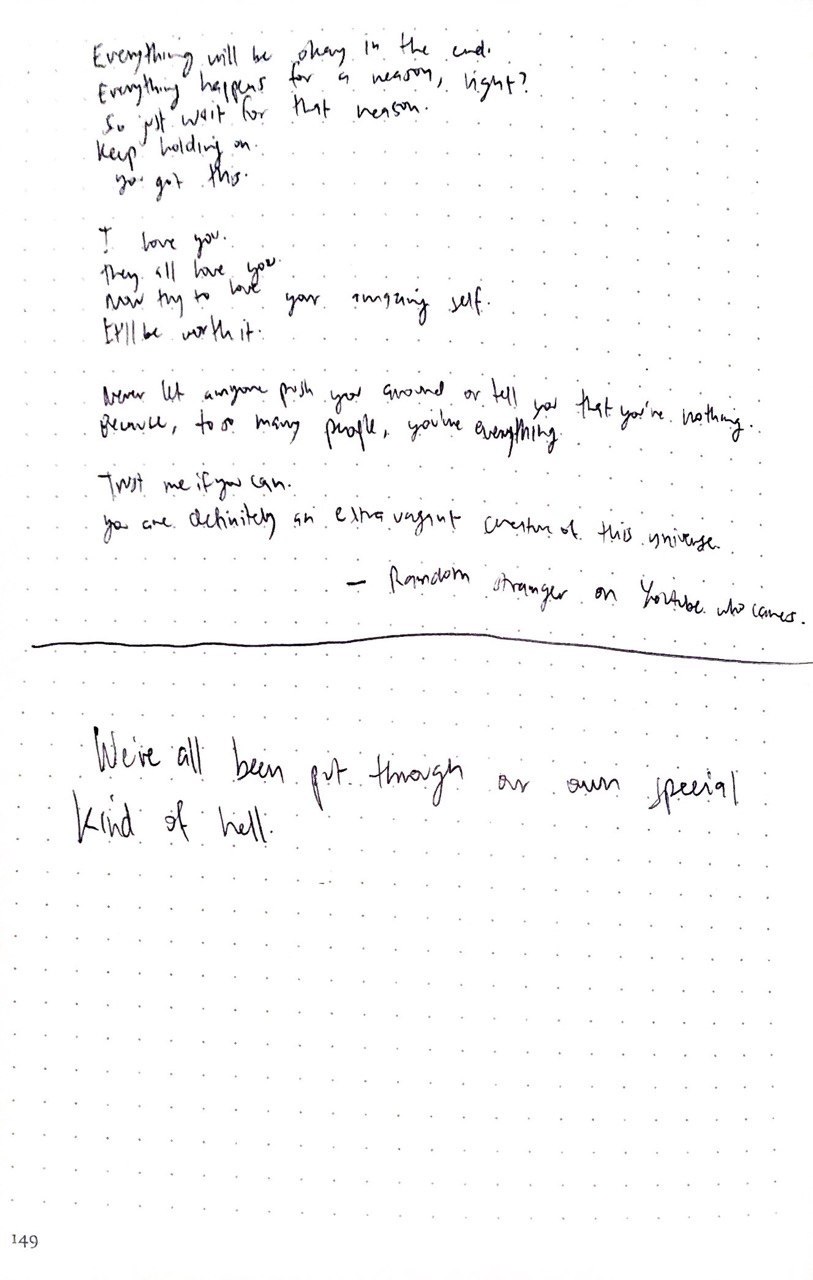 Everything will be okay in the end.
Everything happens for a reason, right?
So just wait for that reason.
Keep holding on.
You got this.
I love you.
They all love you.
Now try to love your amazing self.
It'll be worth it.
Never let anyone push you around or tell you that you're nothing.
Because, to so many people, you're everything
Trust me if you can.
You are definitely an extravagant creation of this universe.
— Random stranger on Youtube who cares.
We've all been put through our own special
kind of hell.
149